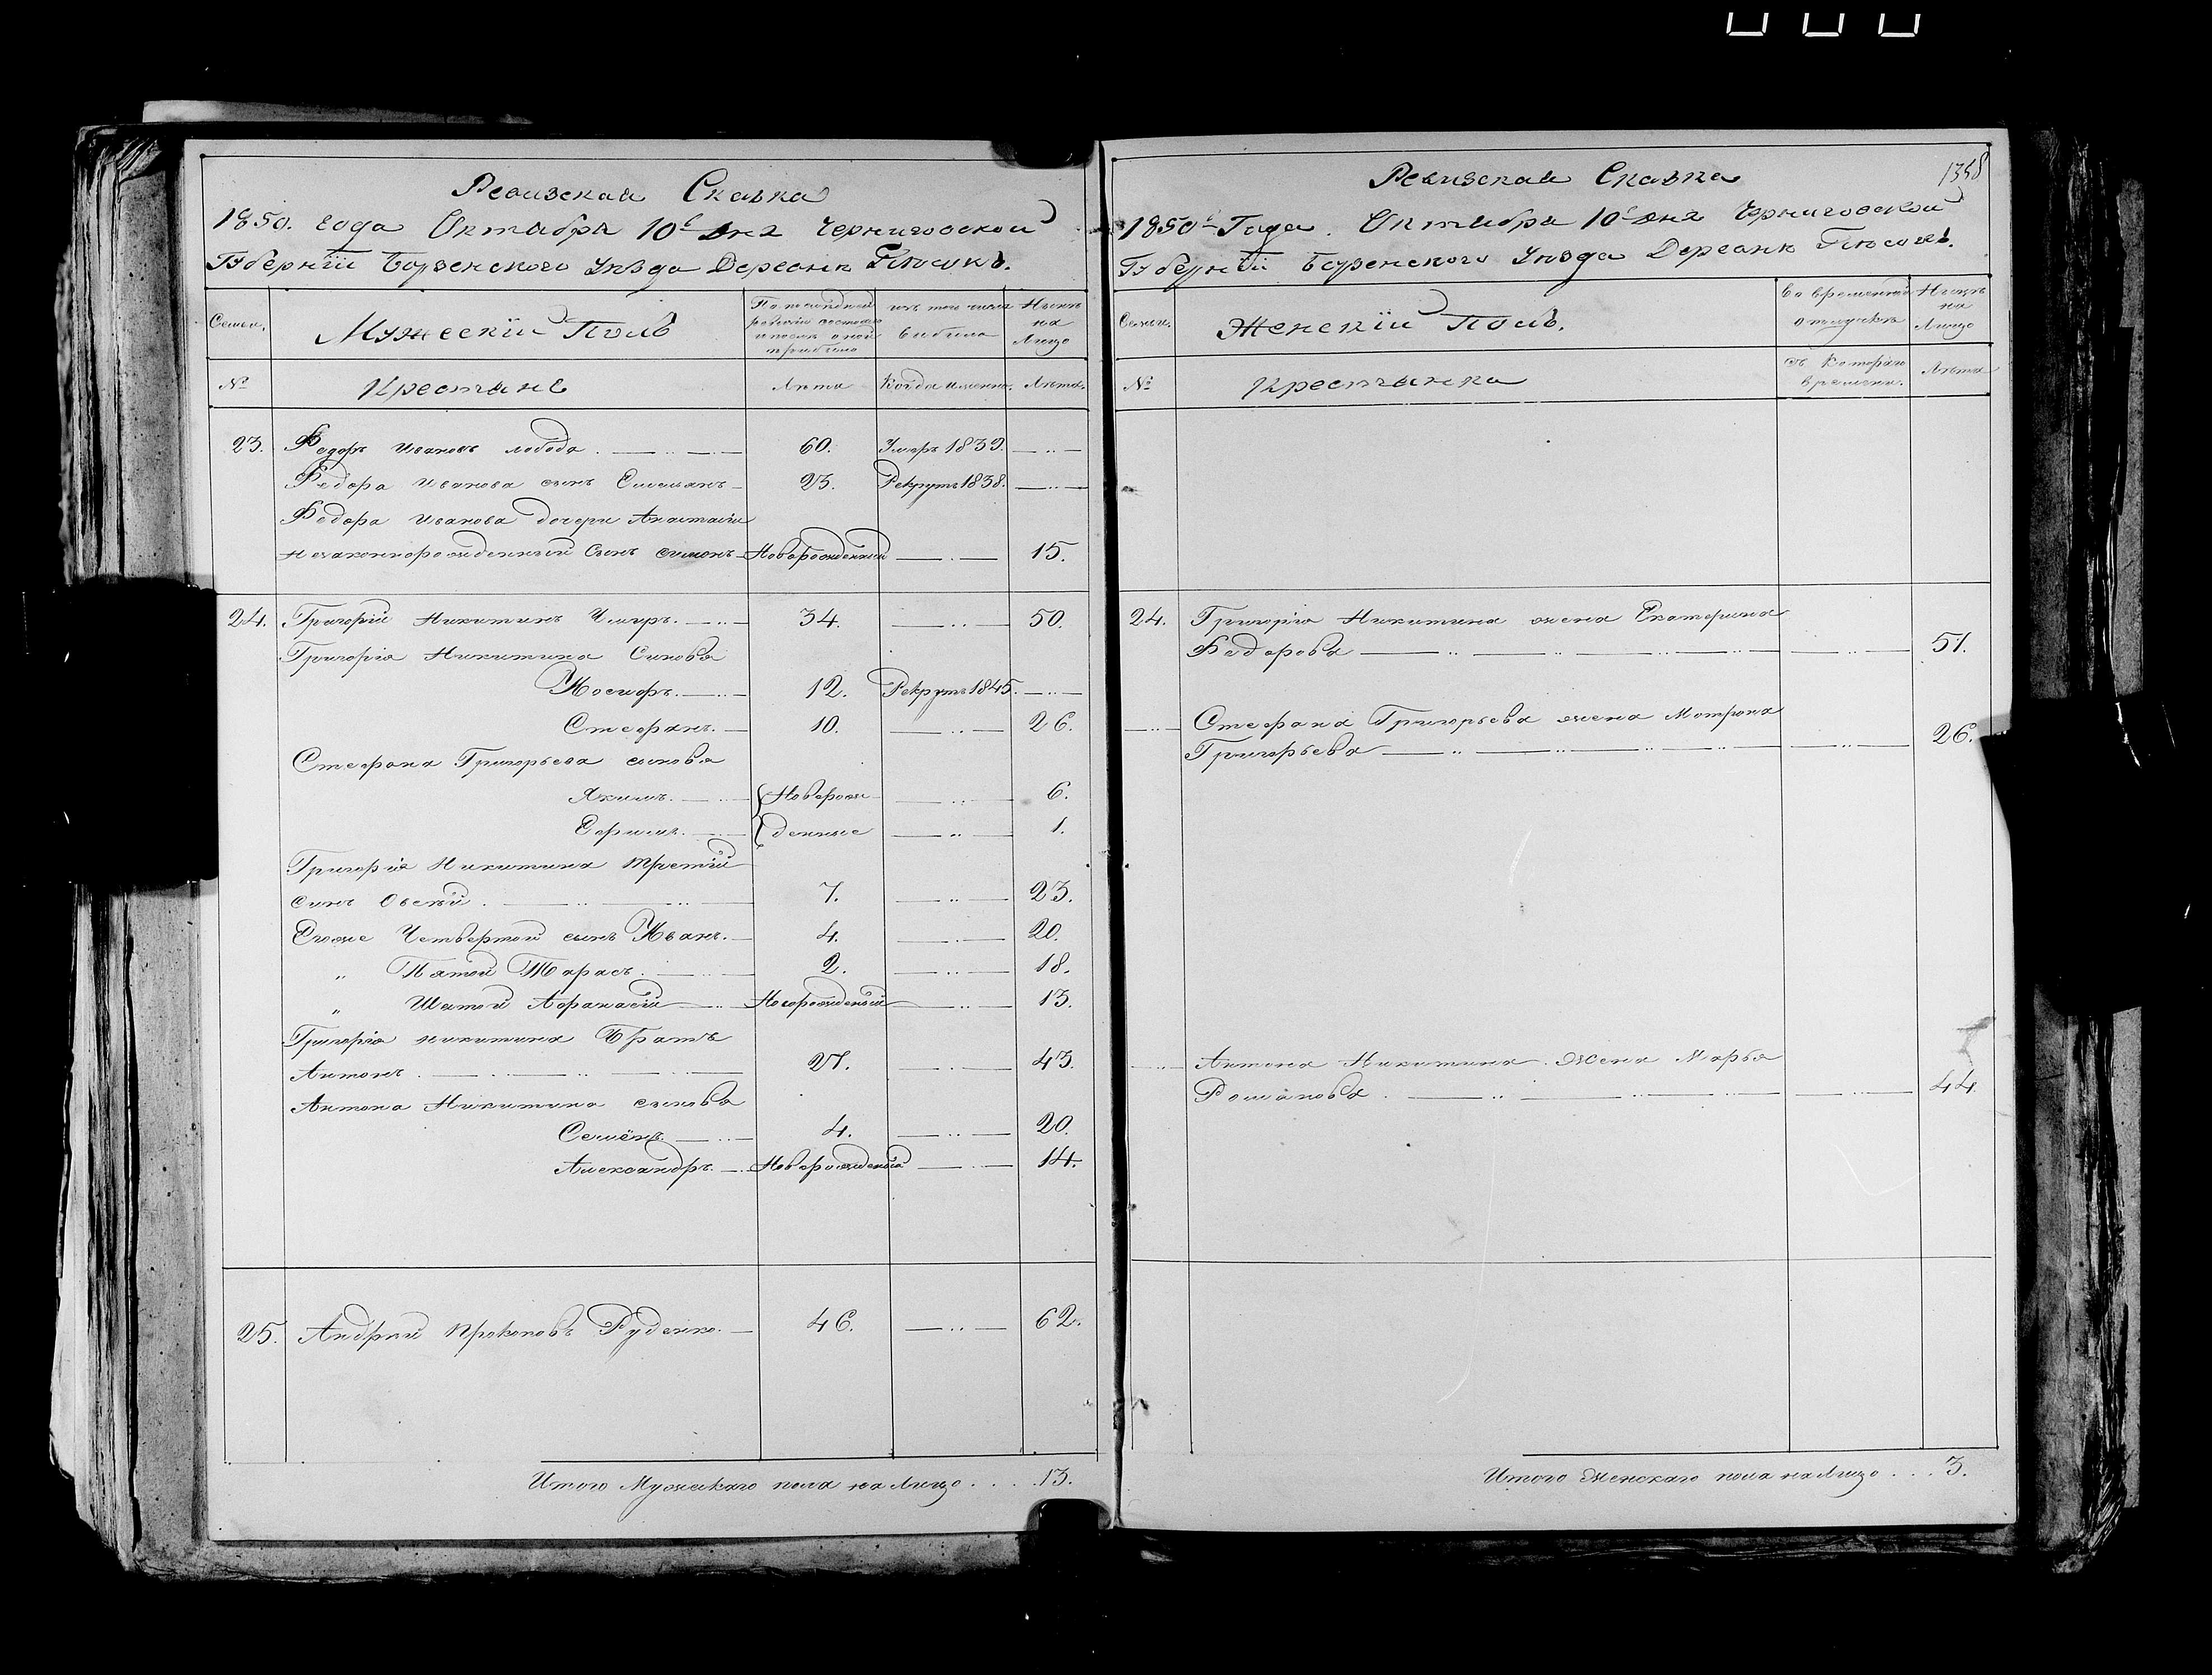 Ревизская Сказка
1850. года Октября 10е дня Черниговской
Губернїи Борзенского Уезда Деревни Пѣсокъ.
Семьи.
Мужескїй Полъ
По последней ревизїи состояло и после оной прибыло
изъ того числа выбыло
Ныне на Лицо
№
Крестьяне
Лета
Когда именно.
Лѣта.
23. Федоръ Ивановъ Лобода. 60. Умеръ 1839.
Федора Иванова сынъ Емельянъ 23. Рекрутъ 1838.
Федора Иванова дочери Анастасїи
незаконнорожденный Сынъ Симонъ Новорожденный 15.
24. Григорїй Никитинъ Чмиръ. 34. 50.
Григорїя Никитина Синовя
Иосифъ. 12. Рекрутъ 1845.
Стефанъ. 10. 26.
Стефана Григорьева сыновя
Якимъ. Новорож 6.
Ефимъ. денные 1.
Григорїя Никитина Третїй
синъ Овсѣй. 7. 23.
Егоже Четвертой сынъ Иванъ. 4. 20.
" Пятой Тарасъ. 2. 18.
" Шатой Афанасїй Новорожденый 13.
Григорїя Никитина Братъ
Антонъ. 27. 43.
Антона Никитина сыновя
Семёнъ. 4. 20.
Александръ. Новорожденый 14.
25. Андрей Прокоповъ Руденко. 46. 62.
Итого Мужскаго пола на Лицо . . . . 13.
1358
Ревизская Сказка
1850й Года. Октября 10е дня Черниговской
Губернїи Борзенского Уезда Деревни Пѣсокъ.
Семьи.
Женскїй Полъ.
Во временной отлучкѣ
Ныне на Лицо
№
Крестьянка
съ Котораго времени.
Лѣта
24. Григорїя Никитина жена Екатерина
Федорова 51.
Стефана Григорьева жена Мотрона
Григорьева 26.
Антона Никитина Жена Марья
Романова. 44.
Итого Женскаго пола на Лицо . . . 3.